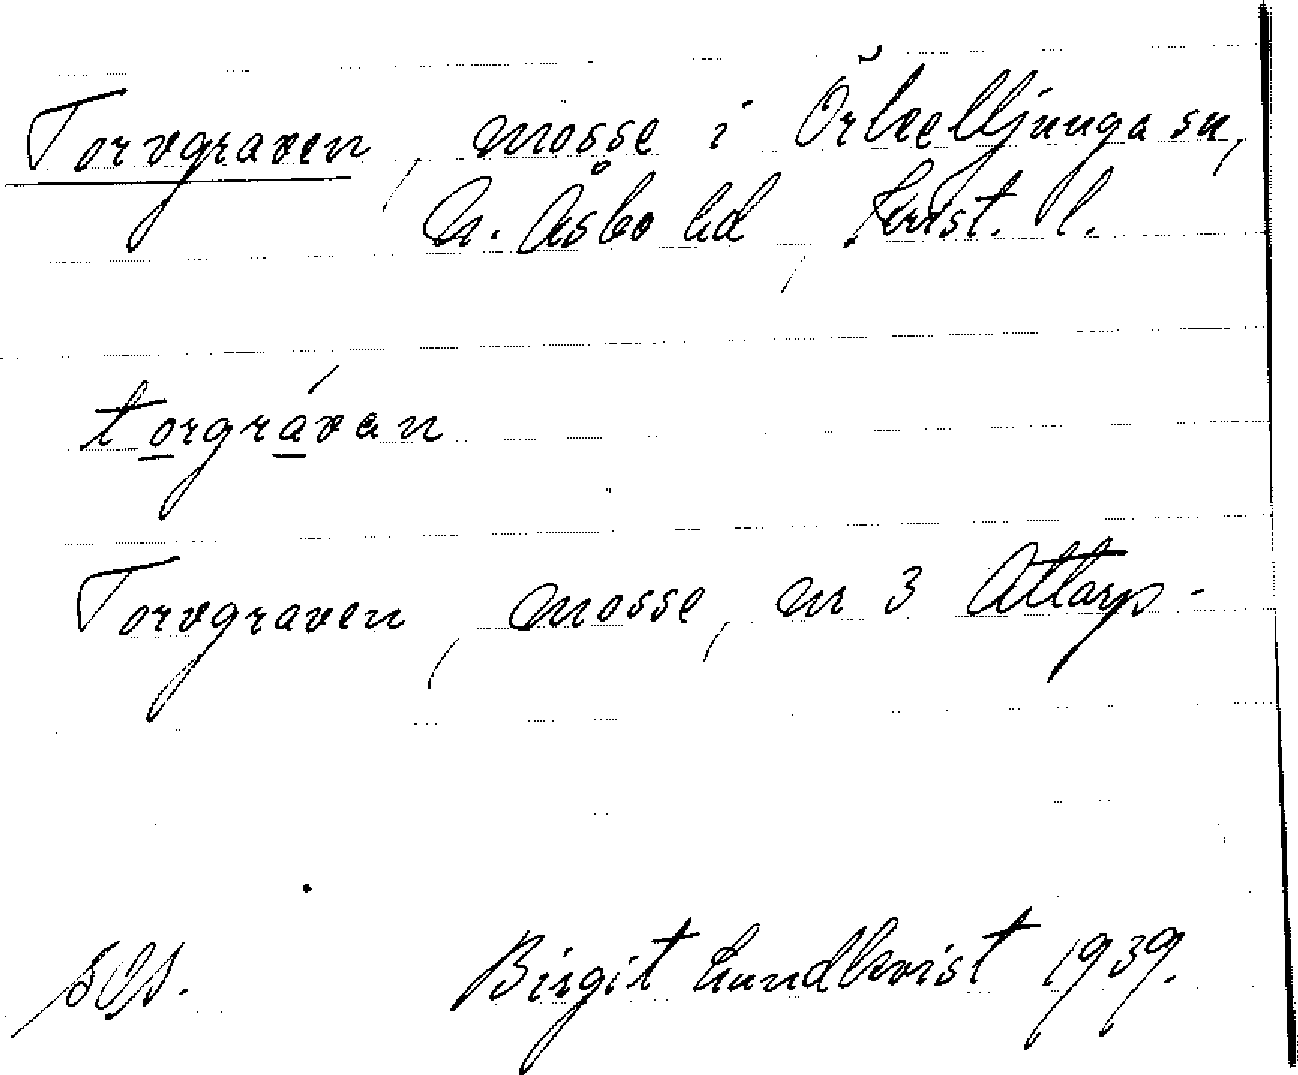 Torvgraven, mosse i Örkelljunga sn,
N. Åsbo hd, Krist. l.
torgrávan
Torvgraven, mosse, nr 3 Attarp.
Birgit Lundkvist 1939.